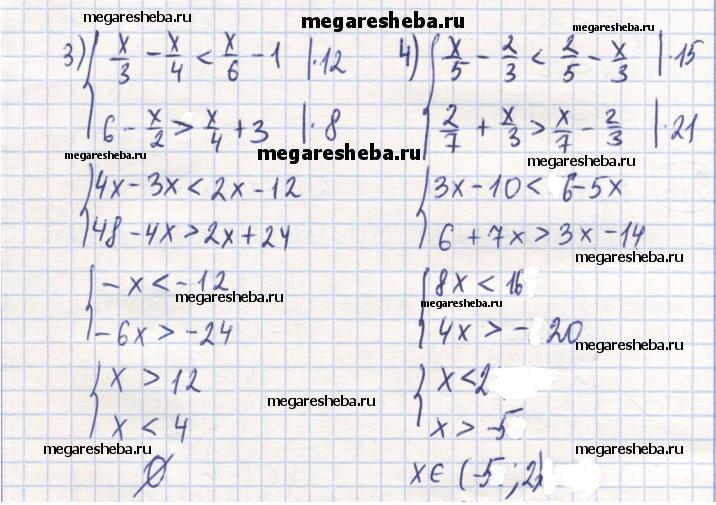 megaresheba.ru
megaresheba.ru
megaresheba.ru
3) { x/3 - x/4 < x/6 - 1 |·12
6 - x/2 > x/4 + 3 |·8
megaresheba.ru
megaresheba.ru
{ 4x - 3x < 2x - 12
48 - 4x > 2x + 24
{ -x < -12
megaresheba.ru
-6x > -24
{ x > 12
x < 4
megaresheba.ru
megaresheba.ru
∅
4) { x/5 - 2/3 < 2/5 - x/3 |·15
2/7 + x/3 > x/7 - 2/3 |·21
megaresheba.ru
{ 3x - 10 < 6 - 5x
6 + 7x > 3x - 14
megaresheba.ru
{ 8x < 16
megaresheba.ru
4x > - 20
megaresheba.ru
{ x < 2
x > -5
megaresheba.ru
x ∈ (-5 ; 2)